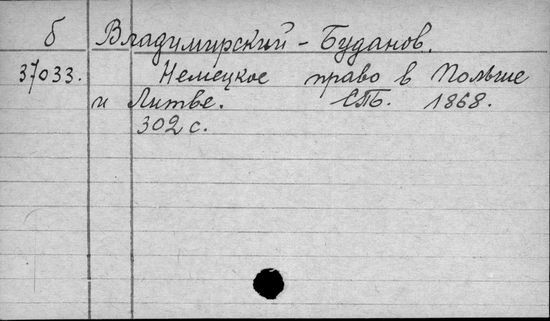 б Владимирский-Буданов.
37033. Немецкое право в Польше
и Литве. СПБ. 1868.
302 с.